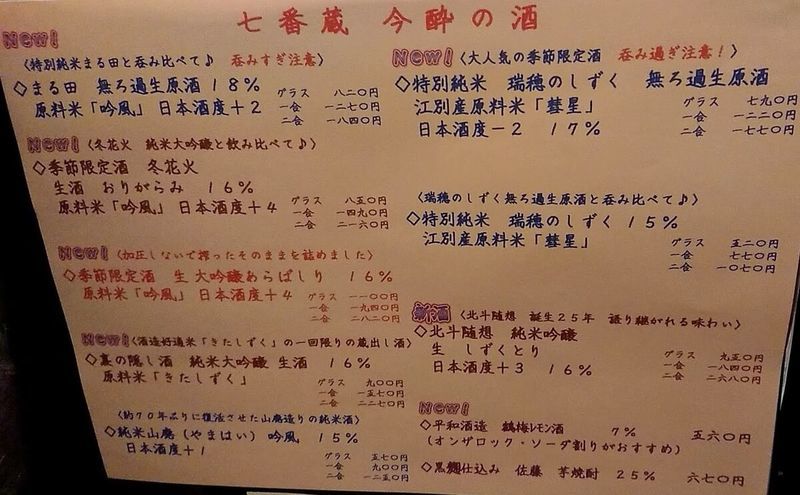 七番蔵 今酔の酒
New!
〈特別純米まる田と呑み比べて♪ 呑みすぎ注意〉
◇まる田 無ろ過生原酒 18%
原料米「吟風」 日本酒度+2
グラス 八二〇円
一合 一二七〇円
二合 一八四〇円
New!
〈冬花火 純米大吟醸と飲み比べて♪〉
◇季節限定酒 冬花火
生酒 おりがらみ 16%
原料米「吟風」 日本酒度+4
グラス 八五〇円
一合 一四九〇円
二合 二一六〇円
New!
〈加圧しないで搾ったそのままを詰めました〉
◇季節限定酒 生 大吟醸あらばしり 16%
原料米「吟風」 日本酒度+4
グラス 一一〇〇円
一合 一九四〇円
二合 二八二〇円
New!
〈酒造好適米「きたしずく」の一回限りの蔵出し酒〉
◇裏の隠し酒 純米大吟醸 生酒 16%
原料米「きたしずく」
グラス 九〇〇円
一合 一五七〇円
二合 二二七〇円
〈約70年ぶりに復活させた山廃造りの純米酒〉
◇純米山廃(やまはい) 吟風 15%
日本酒度+1
グラス 五七〇円
一合 九〇〇円
二合 一二五〇円
New!
〈大人気の季節限定酒 呑み過ぎ注意!〉
◇特別純米 瑞穂のしずく 無ろ過生原酒
江別産原料米「彗星」
日本酒度-2 17%
グラス 七九〇円
一合 一二二〇円
二合 一七七〇円
〈瑞穂のしずく無ろ過生原酒と呑み比べて♪〉
◇特別純米 瑞穂のしずく 15%
江別産原料米「彗星」
グラス 五二〇円
一合 七七〇円
二合 一〇七〇円
新酒
〈北斗随想 誕生25年 語り継がれる味わい〉
◇北斗随想 純米吟醸
生 しずくとり
日本酒度+3 16%
グラス 九五〇円
一合 一八四〇円
二合 二六八〇円
New!
◇平和酒造 鶴梅レモン酒 7% 五六〇円
(オンザロック・ソーダ割りがおすすめ)
◇黒麹仕込み 佐藤 芋焼酎 25% 六七〇円